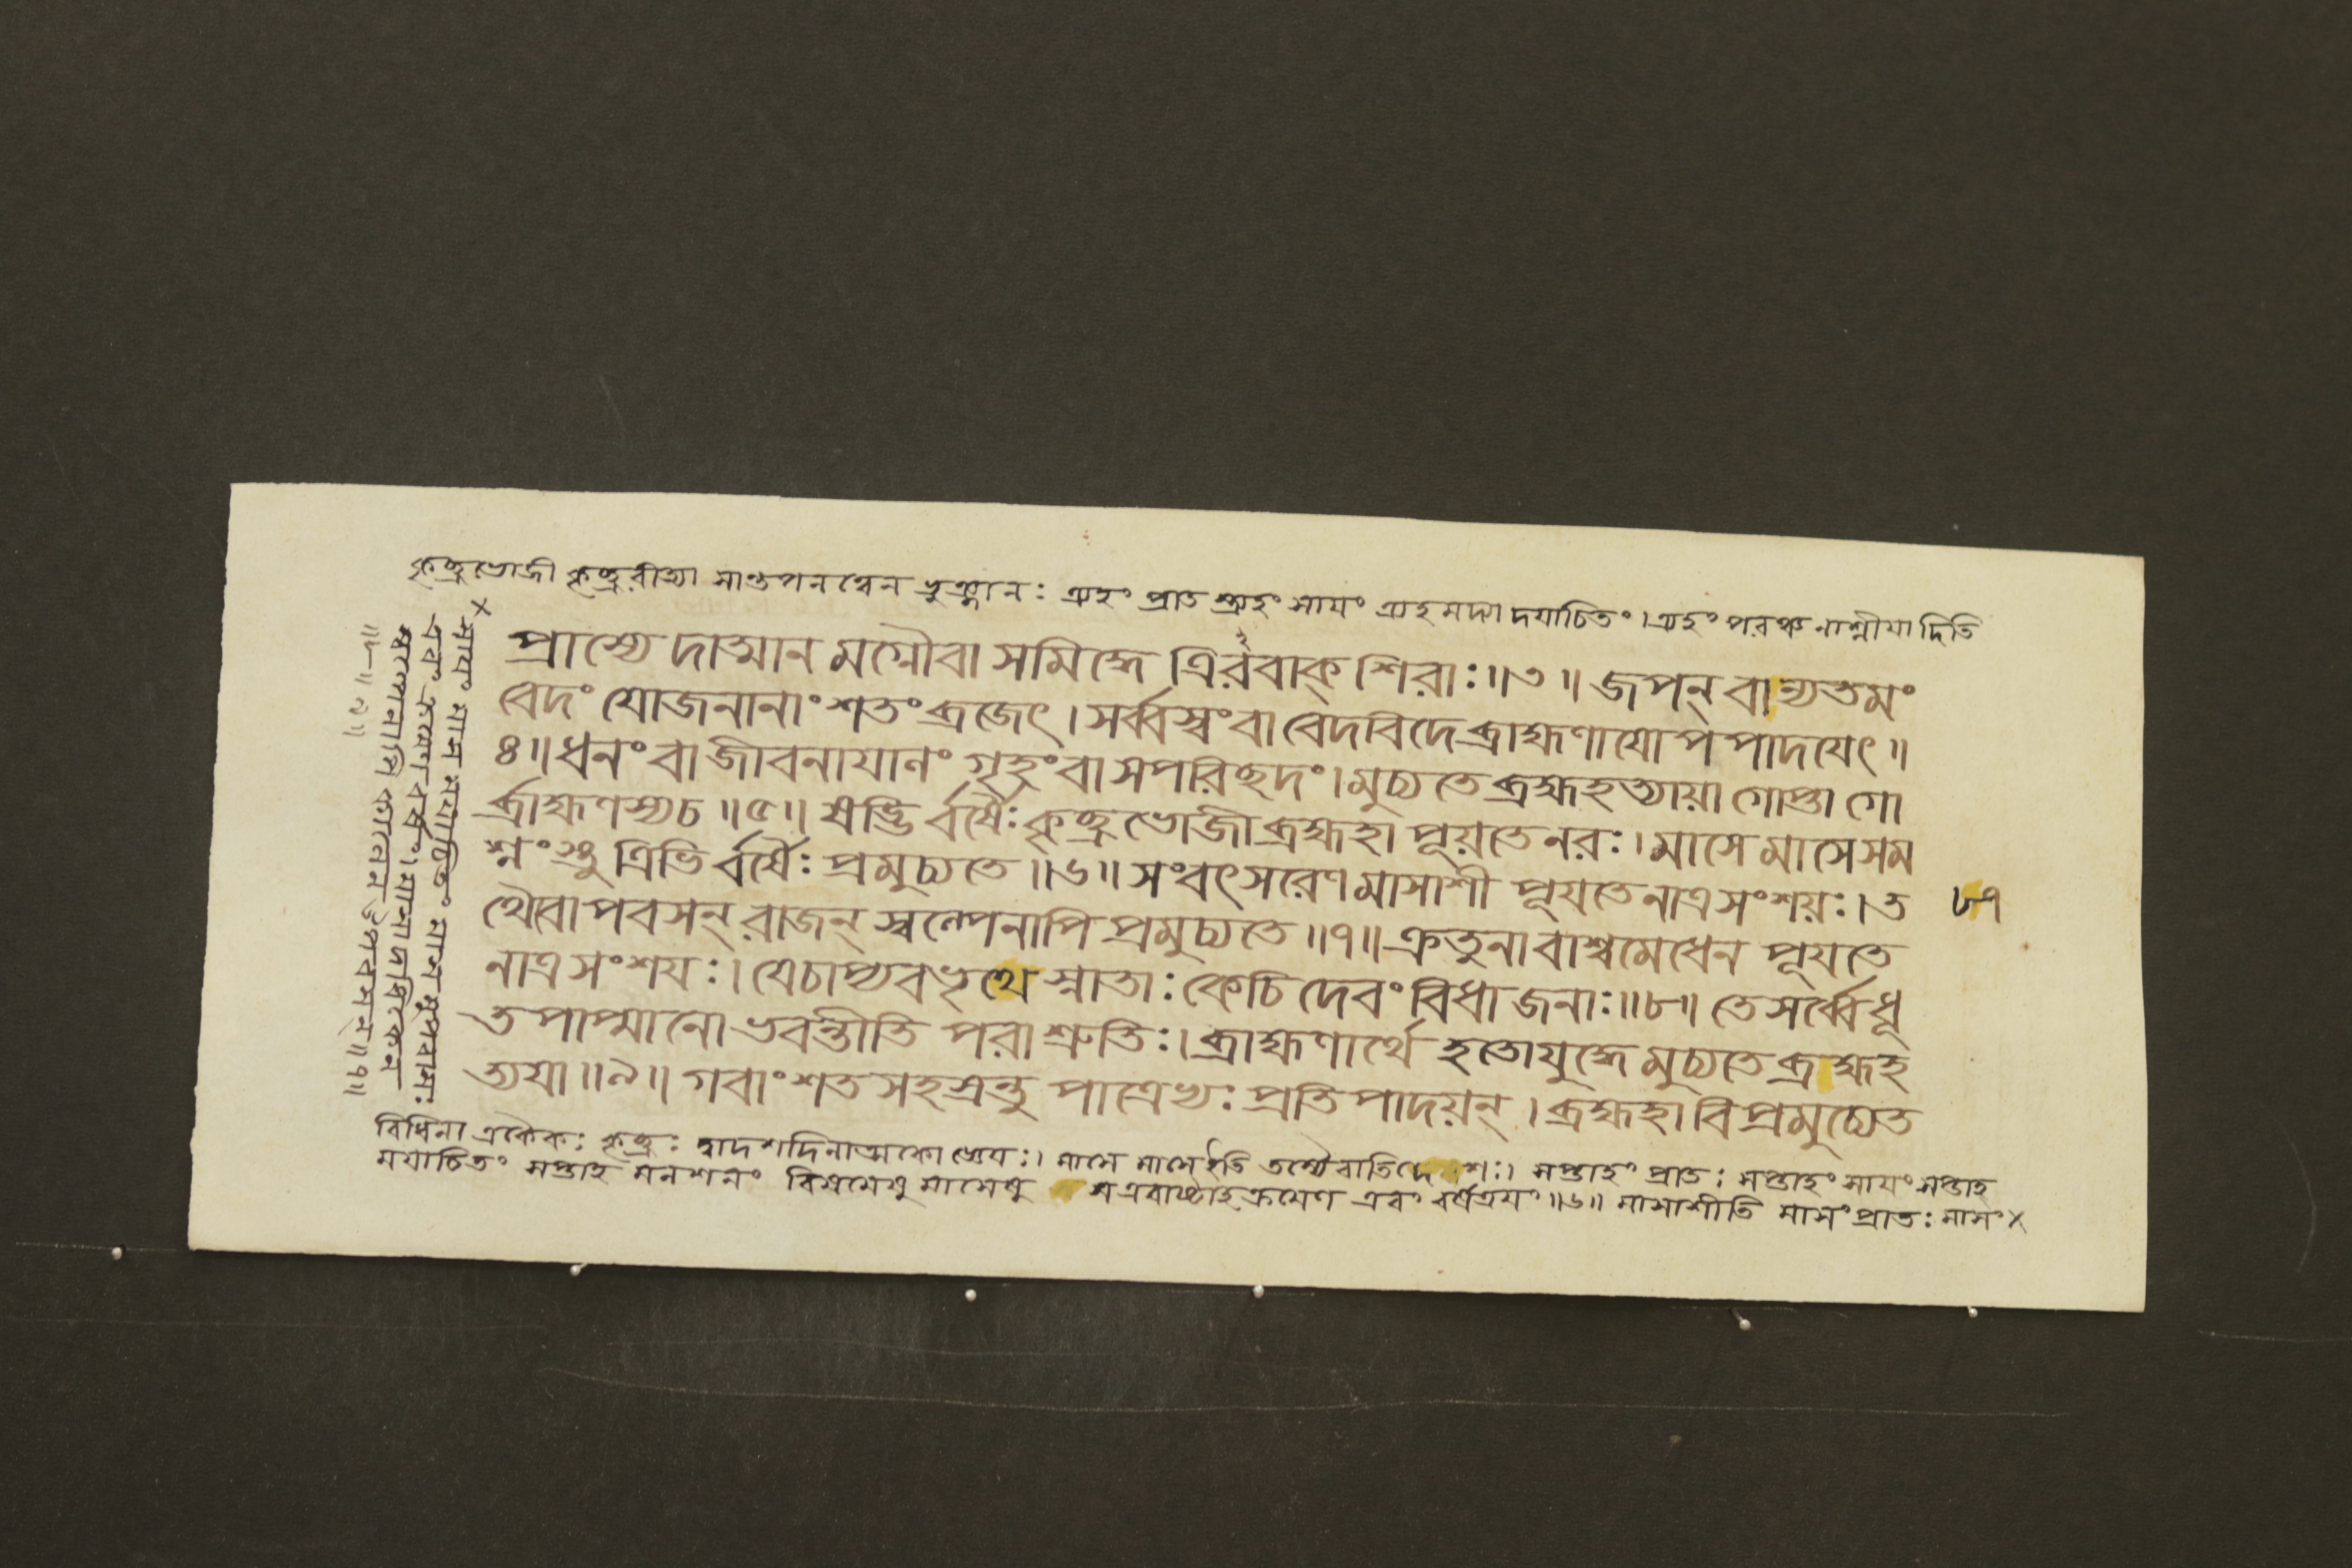 কৃচ্ছ্রভোজী কৃচ্ছ্ররীত্যা সান্তপনত্বেন ভুঞ্জানঃ ত্র্যহং প্রাত স্ত্র্যহং সাযং ত্র্যহমদ্যাদযাচিতং।ত্র্যহং পরঞ্চ নাশ্নীযাদিতি
প্রাস্যেদাত্মানমগ্নৌবা সমিদ্ধে ত্রিরবাক্ শিরাঃ॥৩॥ জপন্ বান্যতমং
বেদং যোজনানাং শতং ব্রজেৎ। সর্ব্বস্বং বা বেদবিদে ব্রাহ্মণাযোপপাদযেৎ॥
৪॥ ধনং বা জীবনাযাণং গৃহংবা সপরিছদং।মুচ্যতে ব্রহ্মহত্যায়া গোপ্তা গো
র্ব্রাহ্মণস্যচ॥৫॥ ষড্ভি র্বর্ষৈঃ কৃচ্ছ্রভোজী ব্রহ্মহা পূয়তে নরঃ।মাসে মাসে সম
শ্নংস্তু ত্রিভি র্বর্ষৈঃ প্রমুচ্যতে॥৬॥ সংবৎসরেণ মাসাশী পূযতে নাত্র সংশয়ঃ।ত
থৈবোপবসন্ রাজন্ স্বল্পেনাপি প্রমুচ্যতে॥৭॥ ক্রতুনা বাশ্বমেধেন পূযতে
নাত্র সংশযঃ। যেচাপ্যবভৃথে স্নাতাঃ কেচিদেবং বিধা জনাঃ॥৮॥ তে সর্ব্বে ধূ
ত পাপ্মানো ভবন্তীতি পরা শ্রুতিঃ।ব্রাহ্মণার্থে হতোযুদ্ধে মুচ্যতে ব্রহ্মহ
ত্যযা॥৯॥ গবাং শতসহস্রন্তু পাত্রেভ্যঃ প্রতিপাদয়ন্। ব্রহ্মহা বিপ্রমুচ্যেত
৮৭
বিধিনা একৈকঃ কৃচ্ছ্রঃ দ্বাদশদিনাত্মকো জ্ঞেযঃ। মাসে মাসে ইতি তস্যৈবাতিদেশঃ। সপ্তাহং প্রাতঃ সপ্তাহং সাযং সপ্তাহ
মযাচিতং সপ্তাহ মনশনং মাসেষু এবং বর্ষত্রযং॥৬॥ মাসাশীতি মাসং প্রাতঃ মাসং×
×সাযং মাস মযাচিতং মাস মুপবাসঃ
এবং ক্রমেণ বর্ষং। মাসাদধিকেন
স্বল্পেনাপি কালেন উপবসন্॥৭॥
॥৮॥৯॥